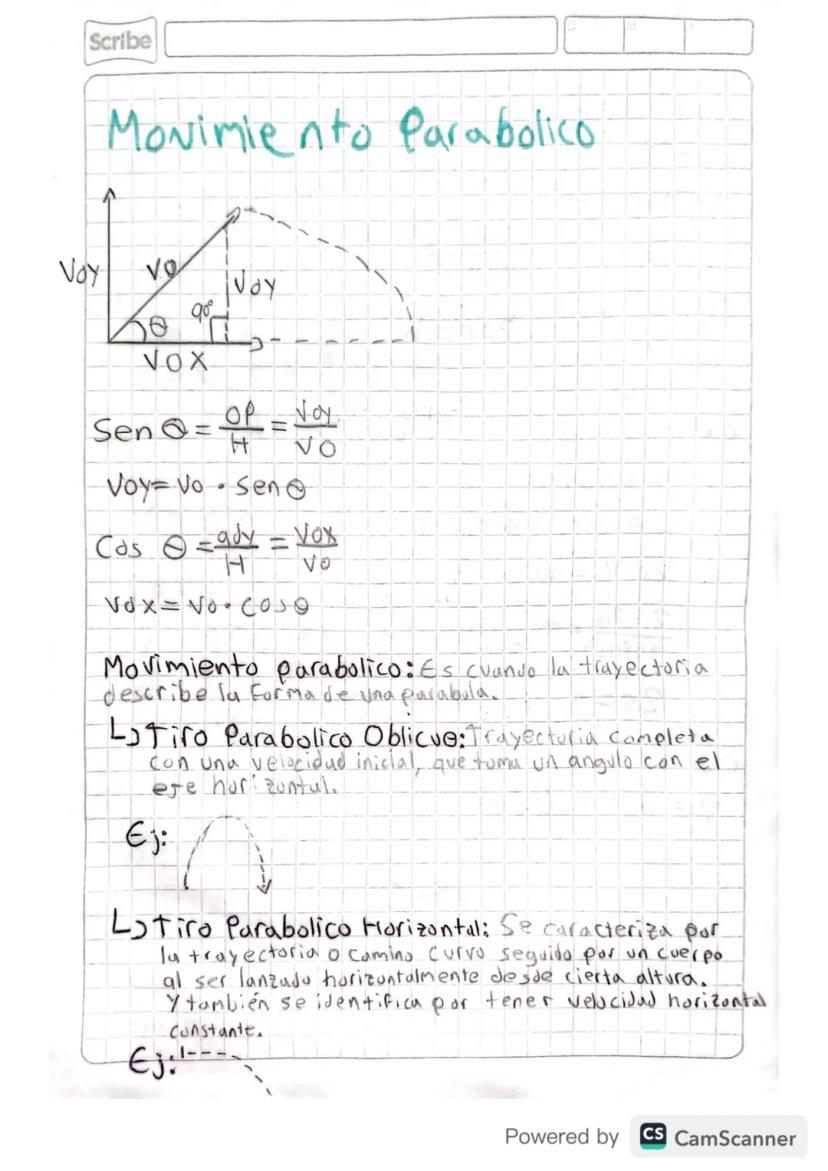 Scribe
Movimiento Parabolico
VoY
Vo
VoY
90°
θ
VOX
Sen θ = OP/H = Voy/VO
VOY = Vo · Sen θ
Cos θ = ady/H = Vox/Vo
Vox = Vo · Cos θ
Movimiento parabolico: Es cuando la trayectoria
describe la forma de una parabula.
L> Tiro Parabolico Oblicuo: Trayectoria completa
con una velocidad inicial, que toma un angulo con el
eje horizontal.
Ej:
L> Tiro Parabolico Horizontal: Se caracteriza por
la trayectoria o camino curvo seguido por un cuerpo
al ser lanzado horizontalmente desde cierta altura.
Y también se identifica por tener velocidad horizontal
constante.
Ej:
Powered by CS CamScanner